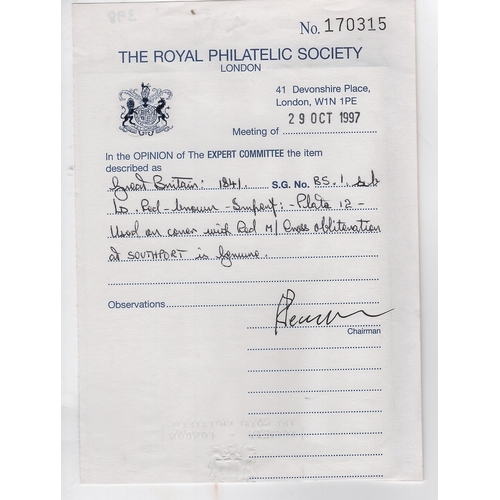 No. 170315
THE ROYAL PHILATELIC SOCIETY
LONDON
41 Devonshire Place,
London, W1N 1PE
29 OCT 1997
Meeting of
In the OPINION of The EXPERT COMMITTEE the item
described as
Great Britain: 1841. S.G. No. BS.1.
1d. Red-brown - Imperf: - Plate 12 -
Used on cover with Red M/Cross obliteration
at SOUTHPORT is genuine.
Observations
Chairman